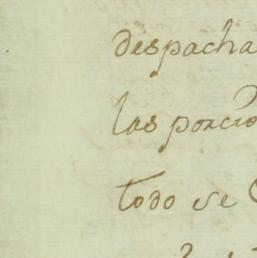 despacha
las porcio
todo se